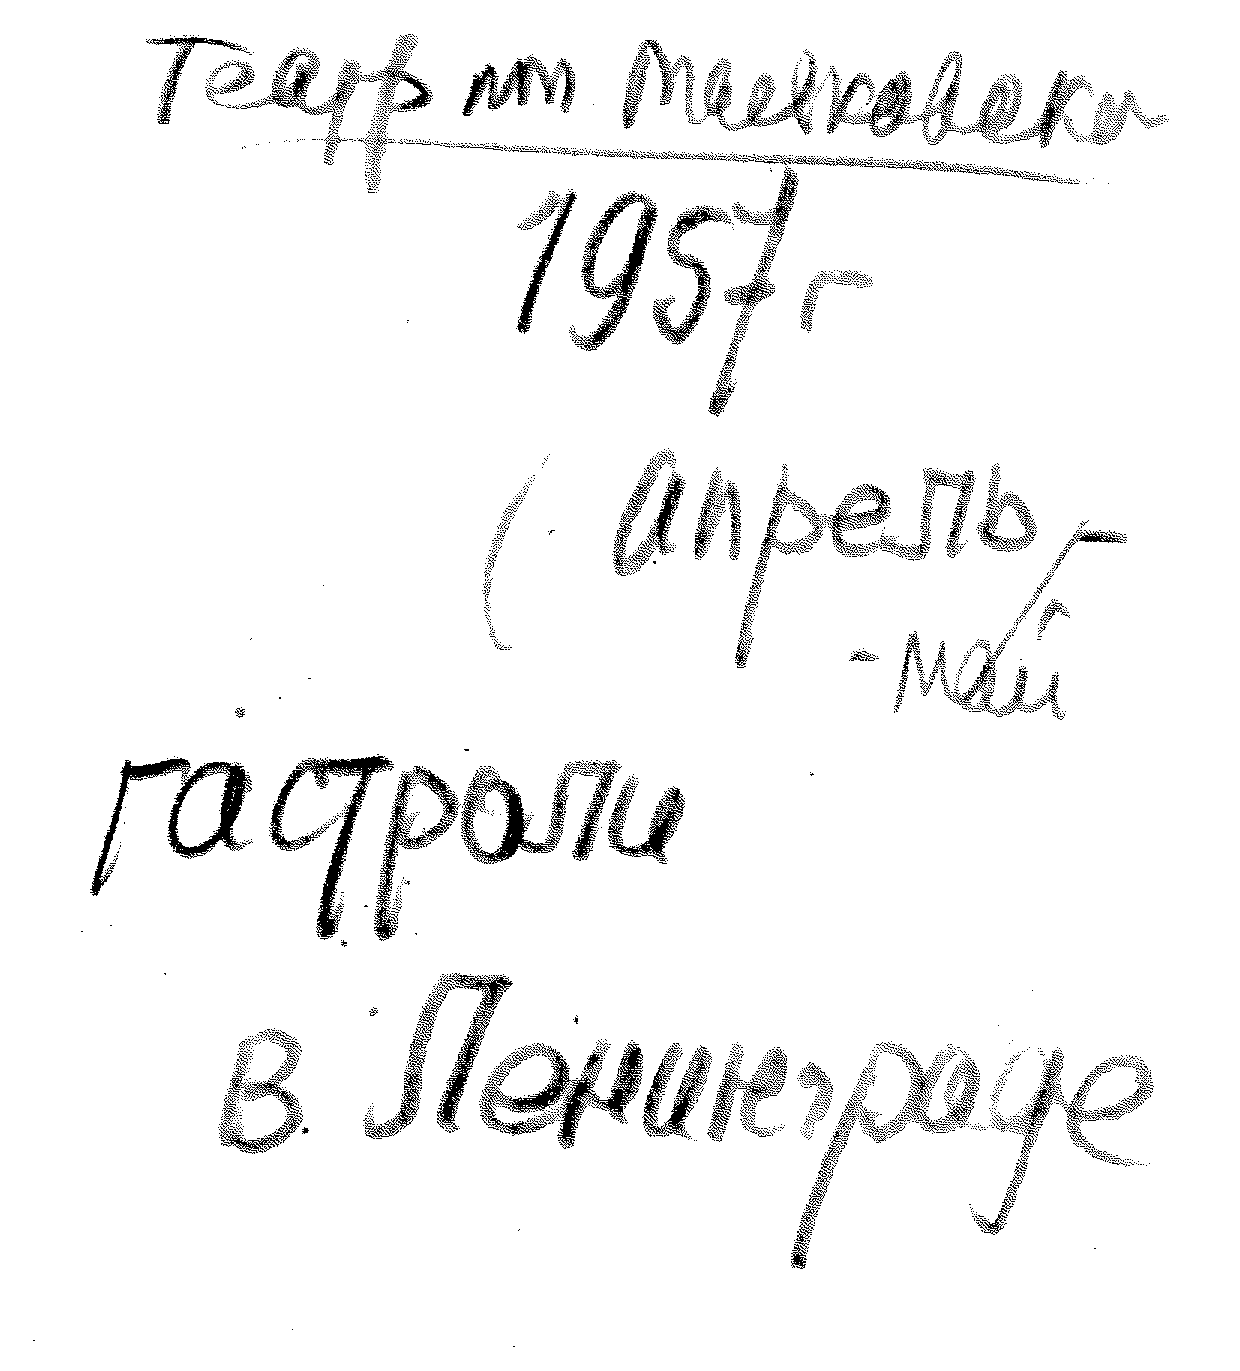 Театр им Маяковски
1957 г
( апрель -
- май
гастроли
в Ленинграде